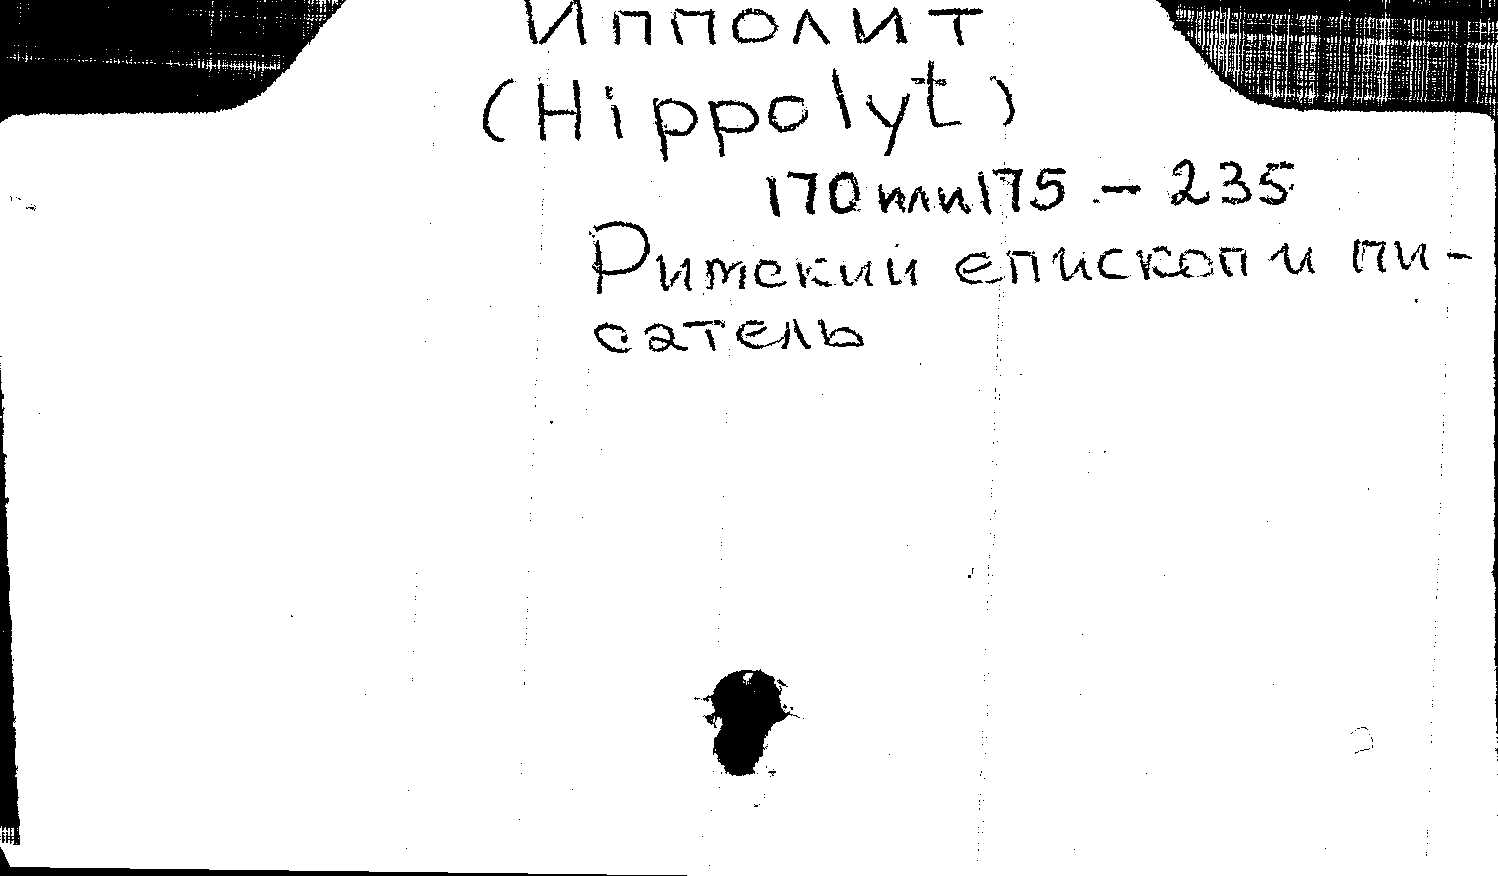 Ипполит
(Hippolyt)
170 или 175 - 235
Римский епископ и пи-
сатель